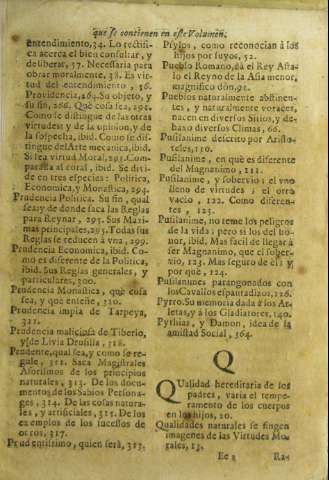 que se contienen en este Volumen.
entendimiento, 34. Lo rectifi-
ca acerca el bien consultar, y
deliberar, 37. Necessaria para
obrar moralmente, 38. Es vir-
tud del entendimiento, 56.
Providencia, 269. Su objeto, y
su fin, 286. Què cosa sea, 292.
Como se distingue de las otras
virtudes y de la opinion, y de
la sospecha, ibid. Como se dis-
tingue del Arte mecanica, ibid.
Si sea virtud Moral, 293. Com-
parasse al coral, ibid. Se divi-
de en tres especies: Politica,
Economica, y Monastica, 294.
Prudencia Politica. Su fin, qual
sea, y de donde saca las Reglas
para Reynar, 295. Sus Maxi-
mas principales, 295. Todas sus
Reglas se reducen à vna, 299.
Prudencia Economica, ibid. Co-
mo es diferente de la Politica,
ibid. Sus Reglas generales, y
particulares, 300.
Prudencia Monastica, què cosa
sea, y què enseñe, 320.
Prudencia impia de Tarpeya,
321.
Prudencia maliciosa de Tiberio,
y de Livia Drusilla, 318.
Prudente, qual sea, y como se re-
gule, 312. Saca Magistrales
Aforismos de los principios
naturales, 313. De los docu-
mentos de los Sabios Persona-
ges, 314. De las cosas natura-
les, y artificiales, 315. De los
exemplos de los sucessos de
otros, 317.
Prudentissimo, quien serà, 317.
Psylos, como reconocian à los
hijos por suyos, 52.
Pueblo Romano, dà el Rey Asta-
lo el Reyno de la Asia menor,
magnifico don, 91.
Pueblos naturalmente abstinen-
tes, y naturalmente voraces,
nacen en diversos Sitios, y de-
baxo diversos Climas, 66.
Pusilanime descrito por Aristo-
teles, 110.
Pusilanime, en què es diferente
del Magnanimo, 111.
Pusilanime, y sobervio: el vno
lleno de virtudes; el otro
vacio, 122. Como diferen-
tes, 123.
Pusilanime, no teme los peligros
de la vida; pero si los del ho-
nor, ibid. Mas facil de llegar à
ser Magnanimo, que el sober-
vio, 123. Mas seguro de el; y
por què, 124.
Pusilanimes parangonados con
los Cavallos espantadizos, 126.
Pyrro. Su memoria dada à los At-
letas, y à los Gladiatores, 140.
Pythias, y Damon, idea de la
amistad Social, 364.
Q
QUalidad hereditaria de los
padres, varia el tempe-
ramento de los cuerpos
en los hijos, 10.
Qualidades naturales se fingen
imagenes de las Virtudes Mo-
rales, 13.
Ee 2 Ra-